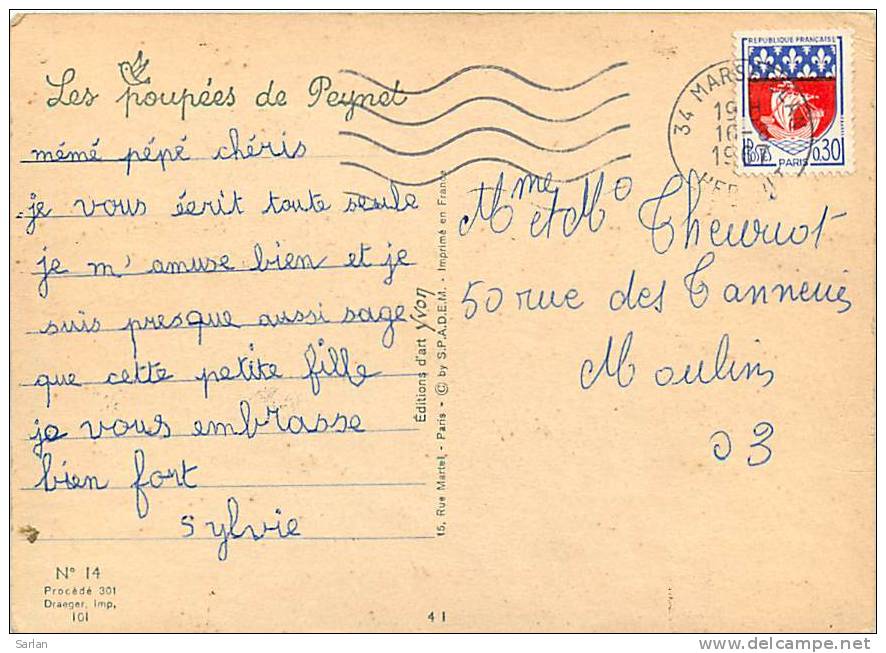 Les poupées de Peynet
mémé pépé chéris
je vous écrit toute seule
je m'amuse bien et je
suis presque aussi sage
que cette petite fille
je vous embrasse
bien fort
Sylvie
N° 14
Procédé 301
Draeger, Imp,
101
41
15, Rue Martel - Paris - © by S.P.A.D.E.M. - Imprimé en France
Éditions d'art Yvon
34 MARS
19 H
16-
19
HER
REPUBLIQUE FRANÇAISE
POSTES
PARIS
0,30
Mme et Mo Theuriot
50 rue des Tanneries
Moulins
03
Sarlan
delcampe.net